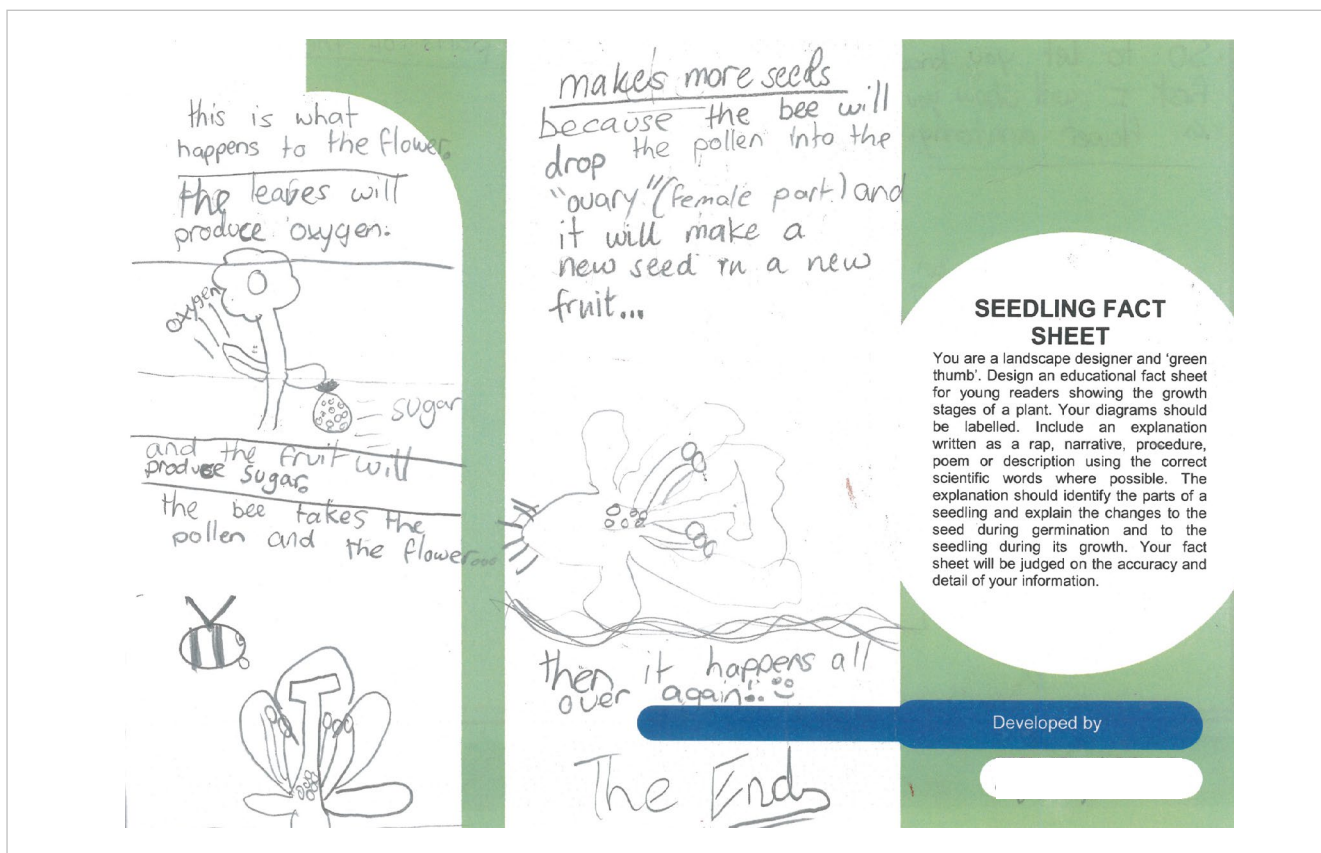 this is what
happens to the flower.
the leaves will
produce oxygen.
oxygen
sugar
and the fruit will
produce sugar.
the bee takes the
pollen and the flower...
makes more seeds
because the bee will
drop the pollen into the
"ovary" (female part) and
it will make a
new seed in a new
fruit...
then it happens all
over again!! :)
The End
SEEDLING FACT
SHEET
You are a landscape designer and ‘green
thumb’. Design an educational fact sheet
for young readers showing the growth
stages of a plant. Your diagrams should
be labelled. Include an explanation
written as a rap, narrative, procedure,
poem or description using the correct
scientific words where possible. The
explanation should identify the parts of a
seedling and explain the changes to the
seed during germination and to the
seedling during its growth. Your fact
sheet will be judged on the accuracy and
detail of your information.
Developed by